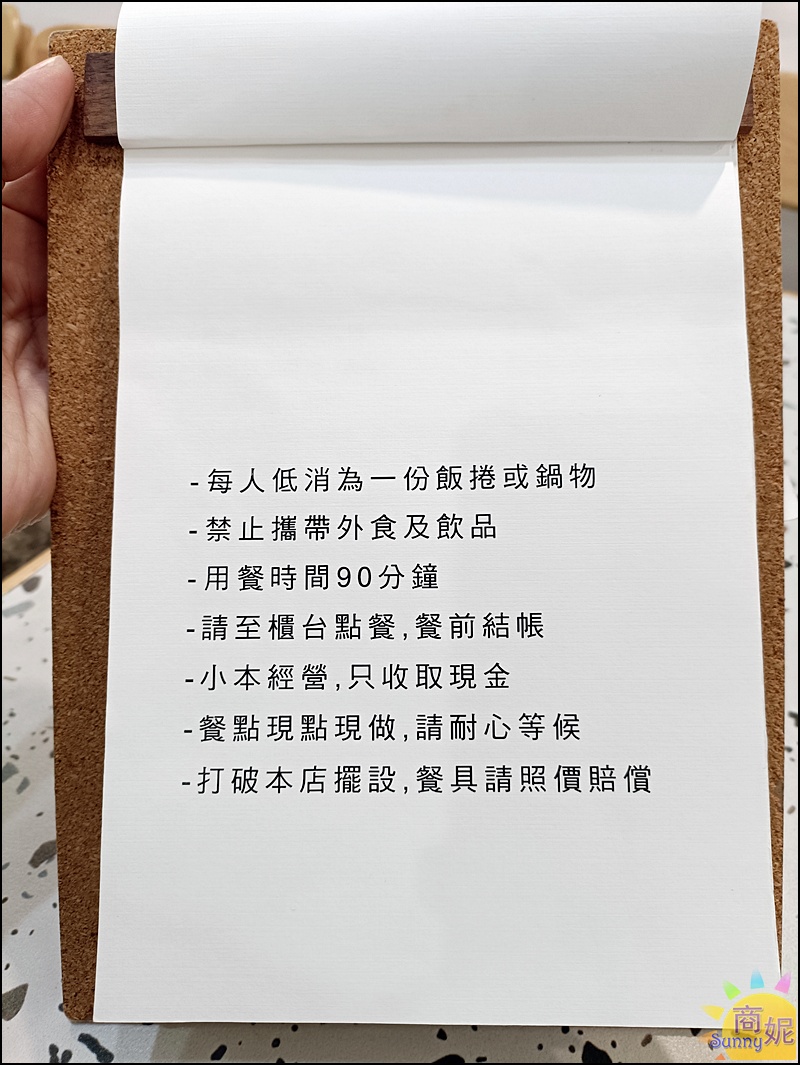 -每人低消為一份飯捲或鍋物
-禁止攜帶外食及飲品
-用餐時間90分鐘
-請至櫃台點餐,餐前結帳
-小本經營,只收取現金
-餐點現點現做,請耐心等候
-打破本店擺設,餐具請照價賠償
商妮
Sunny